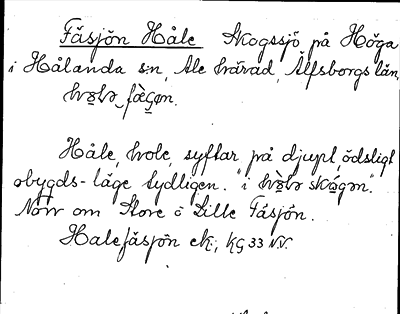 Fåsjön Håle Skogssjö på Höga
i Hålanda sn, Ale härad, Älfsborgs län,
Håle, hole, syftar på djupt, ödsligt
obygds-läge tydligen. "i
Norr om Store ö Lille Fåsjön.
Halefåsjön ek., KG 33 N.V.